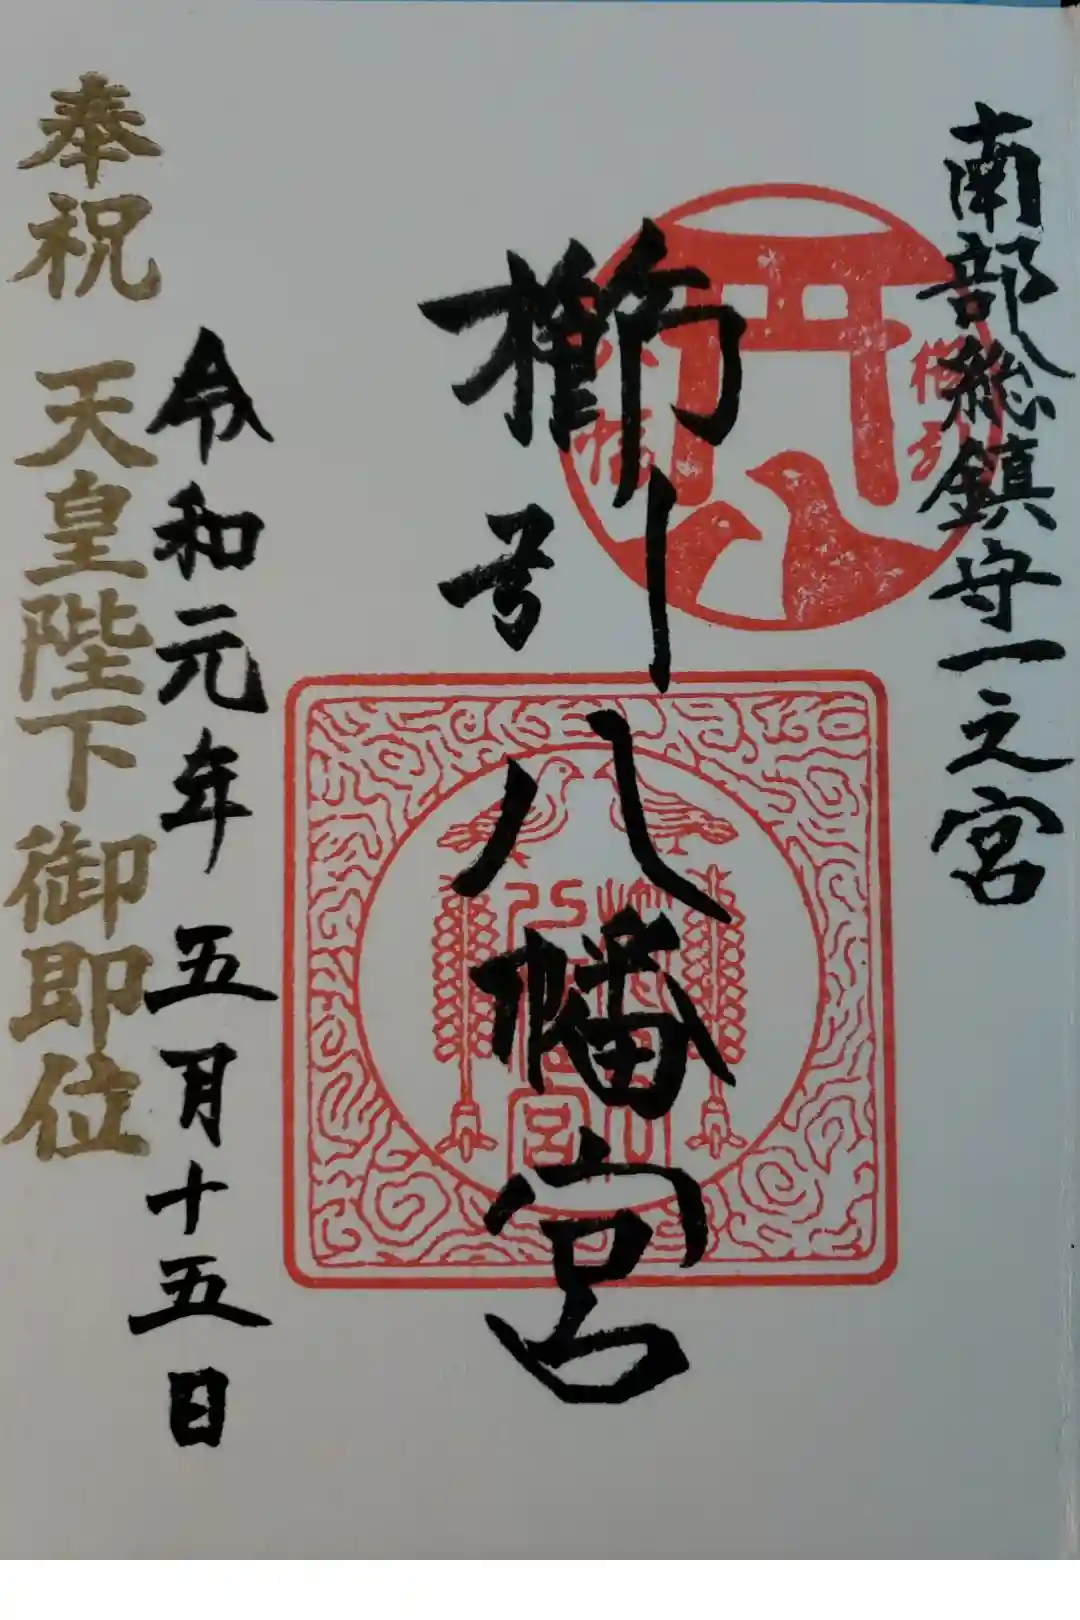 南部総鎮守一之宮
櫛引八幡宮
令和元年五月十五日
奉祝 天皇陛下御即位
櫛引
八幡